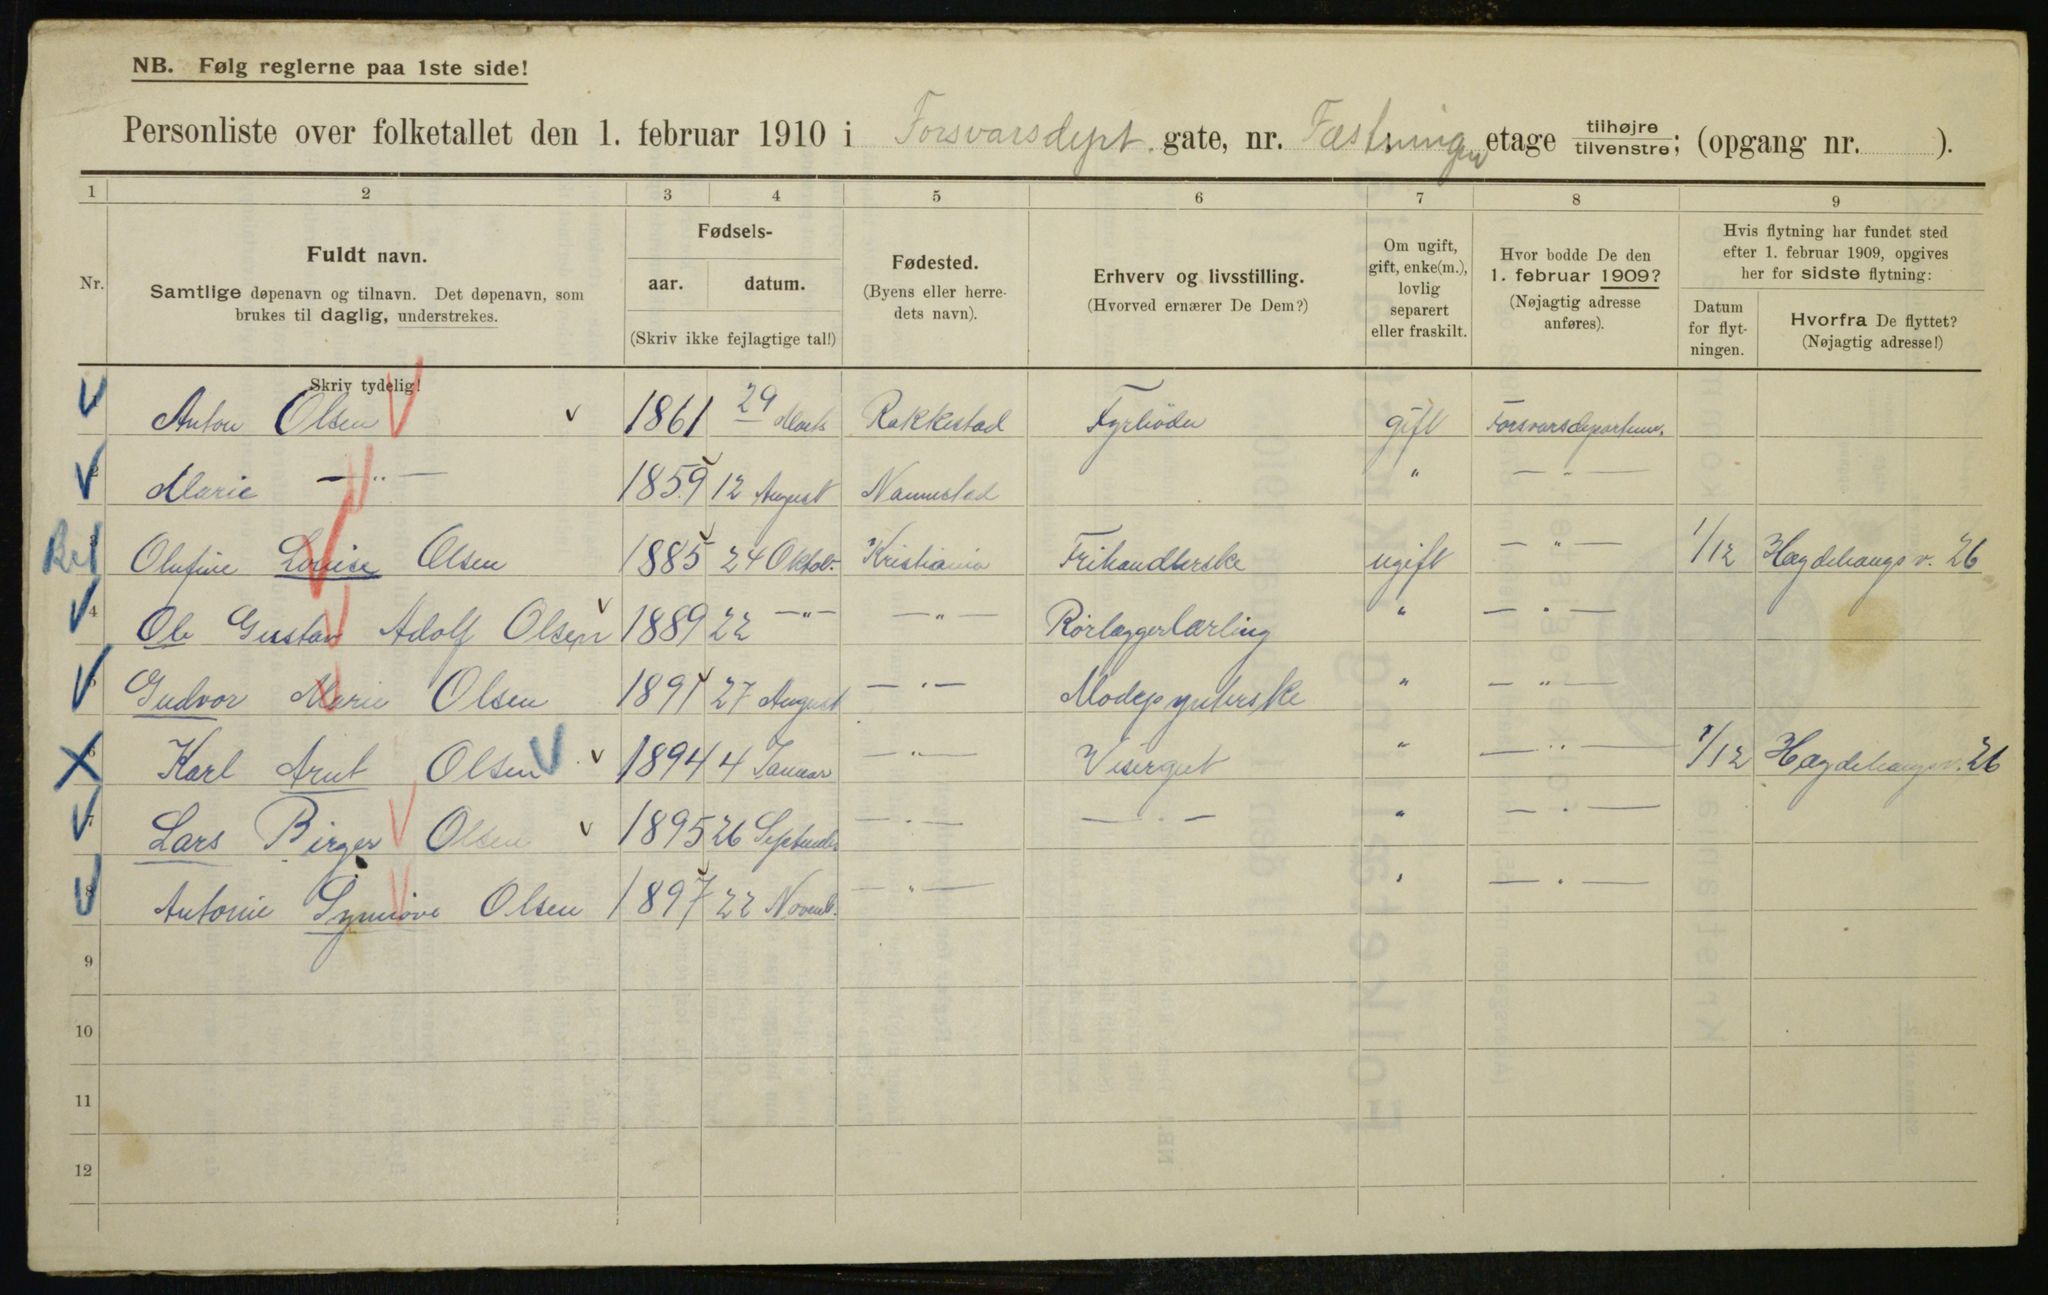 NB. Følg reglerne paa 1ste side!
Personliste over folketallet den 1. februar 1910 i Forsvarsdept. gate, nr. Fæstningen etage tilhøjre tilvenstre; (opgang nr. ).
1 2 3 4 5 6 7 8 9
Nr.
Fuldt navn.
Samtlige døpenavn og tilnavn. Det døpenavn, som
brukes til daglig, understrekes.
Skriv tydelig!
Fødsels-
aar. datum.
(Skriv ikke fejlagtige tal!)
Fødested.
(Byens eller herre-
dets navn).
Erhverv og livsstilling.
(Hvorved ernærer De Dem?)
Om ugift,
gift, enke(m.),
lovlig
separert
eller fraskilt.
Hvor bodde De den
1. februar 1909?
(Nøjagtig adresse
anføres).
Hvis flytning har fundet sted
efter 1. februar 1909, opgives
her for sidste flytning:
Datum
for flyt-
ningen.
Hvorfra De flyttet?
(Nøjagtig adresse!)
1 Anton Olsen 1861 29 Marts Rakkestad Fyrbøder gift Forsvarsdepartem.
2 Marie —„— 1859 12 August Nannestad „ —„—
3 Olufine Louise Olsen 1885 24 Oktob. Kristiania Frihandlerske ugift —„— 1/12 Hægdehaugsv. 26
4 Ole Gustav Adolf Olsen 1889 22 —„— —„— Rørlæggerlærling „ —„—
5 Gudvor Marie Olsen 1891 27 August —„— Modepynterske „ —„—
6 Karl Arnt Olsen 1894 4 Januar —„— Visergut „ —„— 1/12 Hægdehaugsv. 26
7 Lars Birger Olsen 1895 26 September —„— —„— „ —„—
8 Antonie Synnøve Olsen 1897 22 Novemb. —„— „ —„—
9
10
11
12